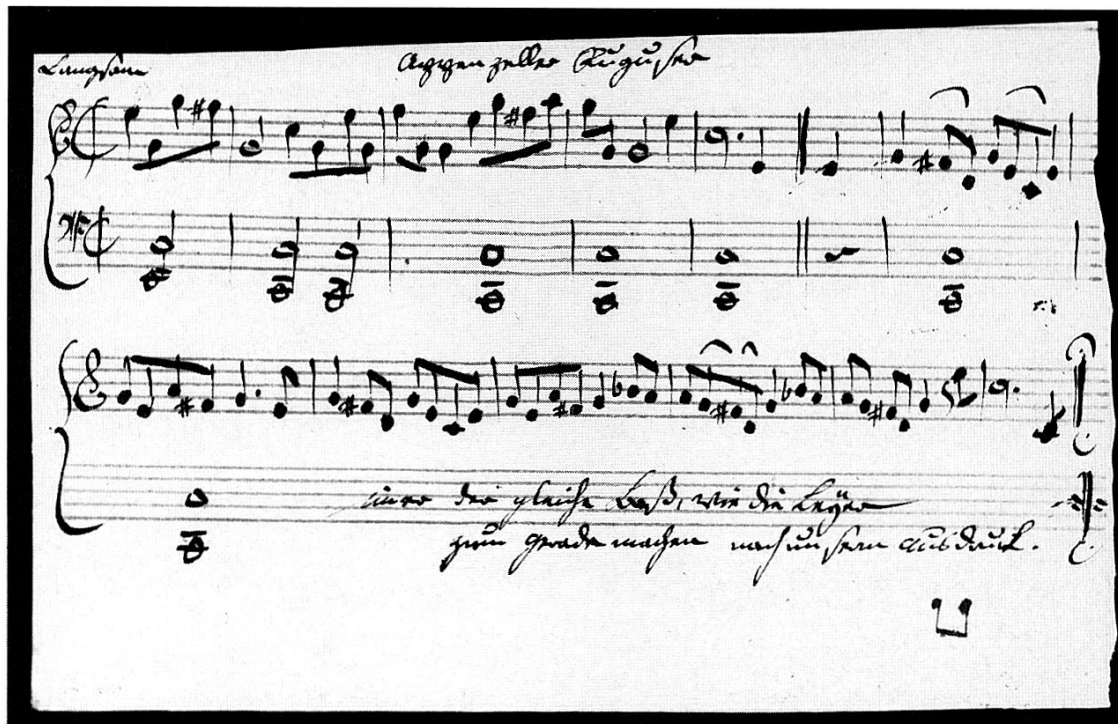 Langsam
Appenzeller Ruguser
imer der gleiche Baß, wie die Leÿer
zum gerade machen nach unserm Ausdruck.